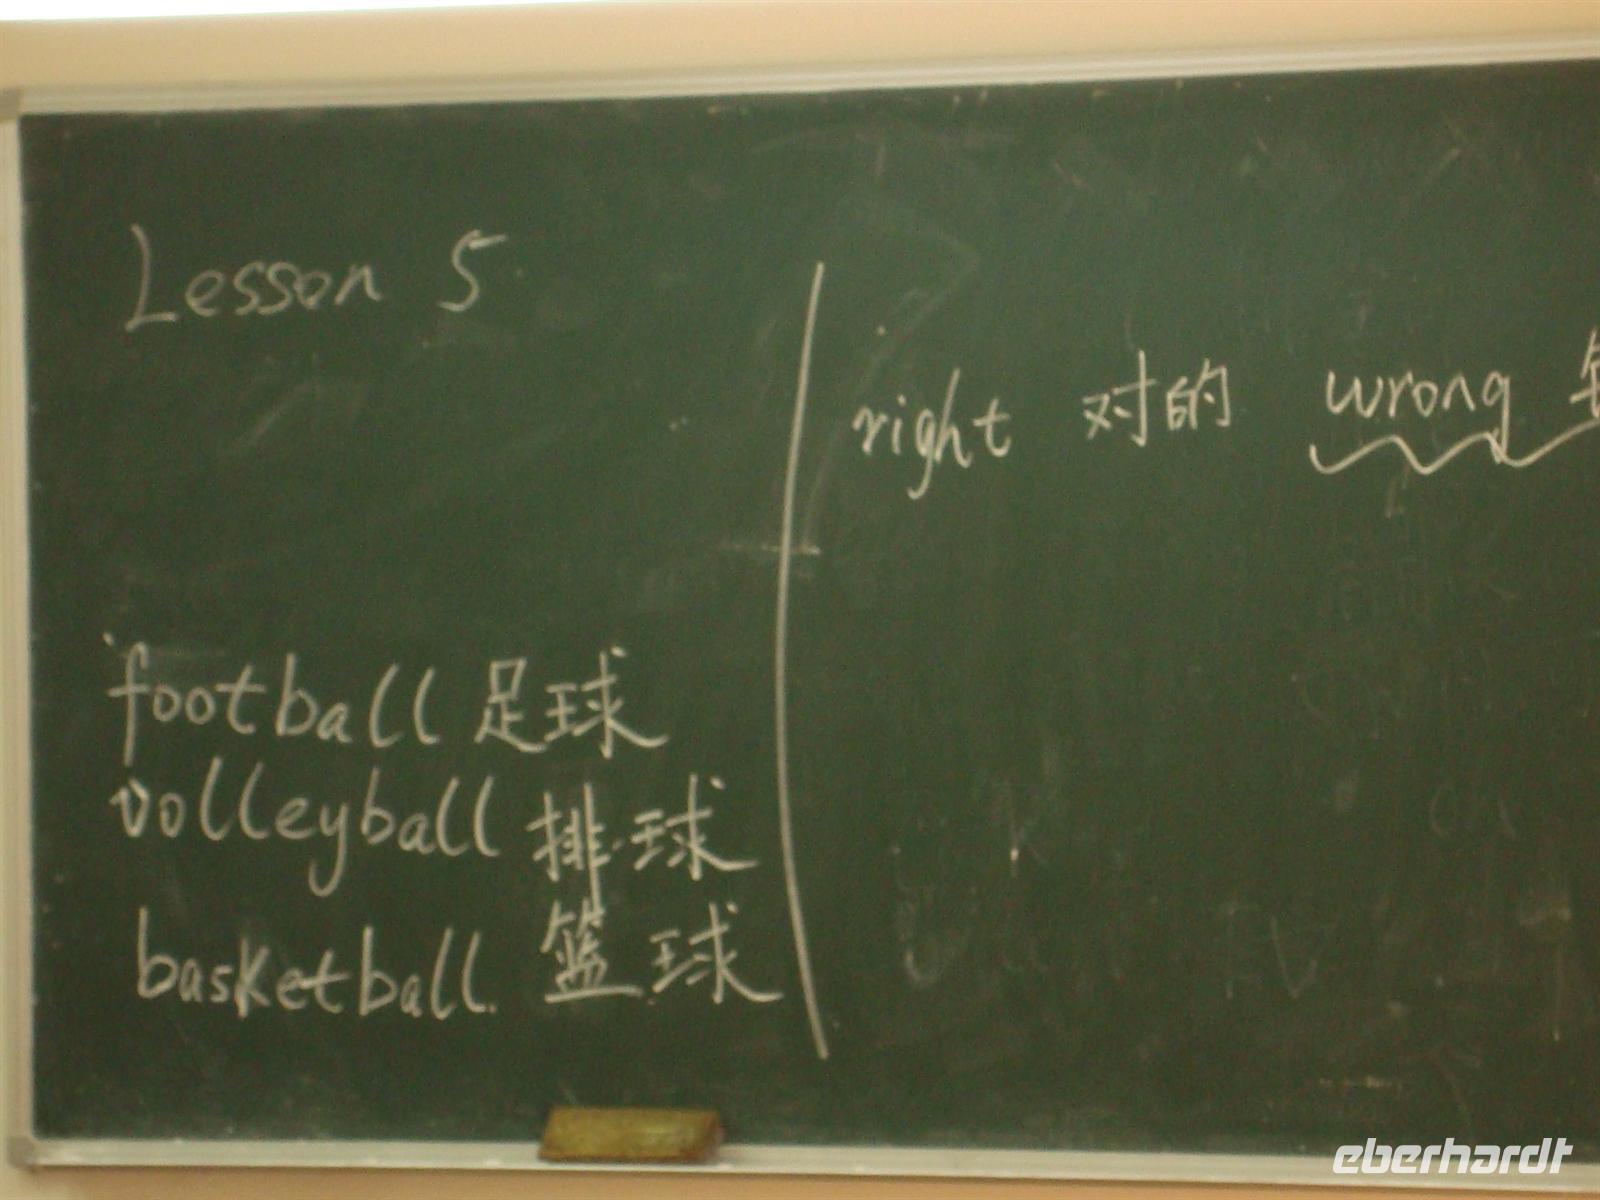 Lesson 5
football 足球
volleyball 排球
basketball 篮球
right 对的 wrong
eberhardt